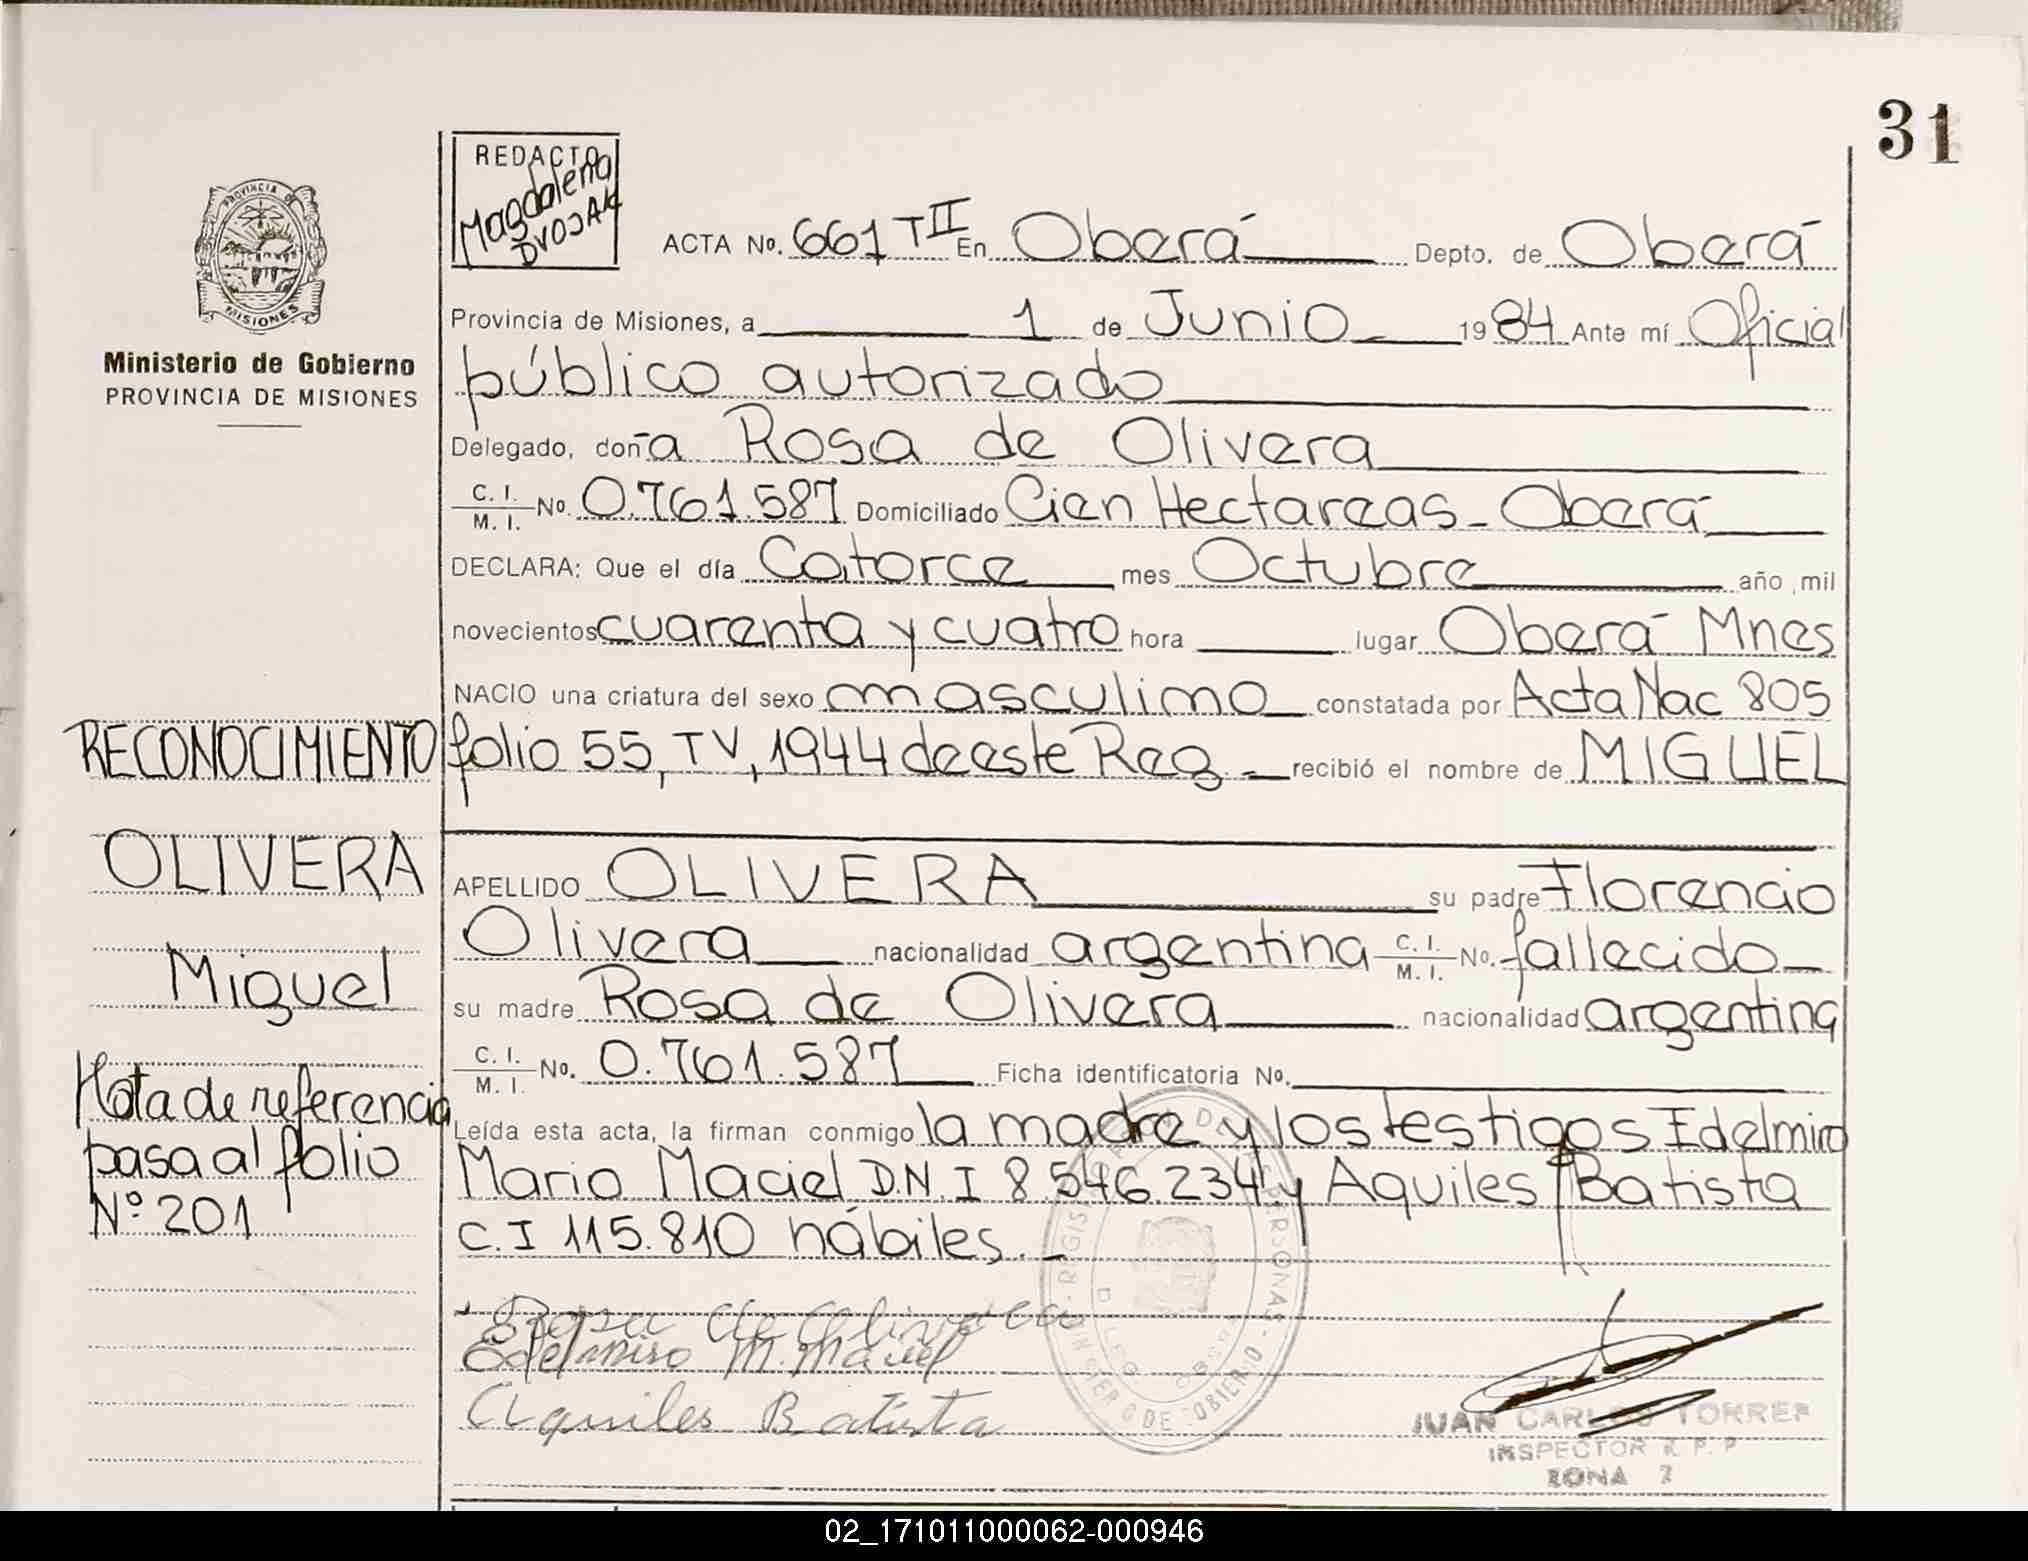 31
REDACTO
Magdalena
DVOJAK
PROVINCIA DE
MISIONES
Ministerio de Gobierno
PROVINCIA DE MISIONES
ACTA No. 661 T II En Oberá Depto. de Oberá
Provincia de Misiones, a 1 de Junio 1984 Ante mí Oficial
público autorizado
Delegado, doña Rosa de Olivera
C. I. / M. I. No. 0.761.587 Domiciliado Cien Hectareas - Oberá
DECLARA: Que el día Catorce mes Octubre año mil
novecientos cuarenta y cuatro hora lugar Oberá Mnes
NACIO una criatura del sexo masculino constatada por Acta Nac 805
folio 55, TV, 1944 de este Reg recibió el nombre de MIGUEL
APELLIDO OLIVERA su padre Florencio
Olivera nacionalidad argentina C. I. / M. I. No. fallecido
su madre Rosa de Olivera nacionalidad argentina
C. I. / M. I. No. 0.761.587 Ficha identificatoria No.
Leída esta acta, la firman conmigo la madre y los testigos Edelmiro
Mario Maciel D.N.I 8.546.234 y Aquiles Batista
C.I 115.810 hábiles.
Rosa de Olivera
Edelmiro M. Maciel
Aquiles Batista
JUAN CARLOS TORRES
INSPECTOR R. P. P
ZONA 2
RECONOCIMIENTO
OLIVERA
Miguel
Nota de referencia
pasa al folio
Nº 201
02_171011000062-000946